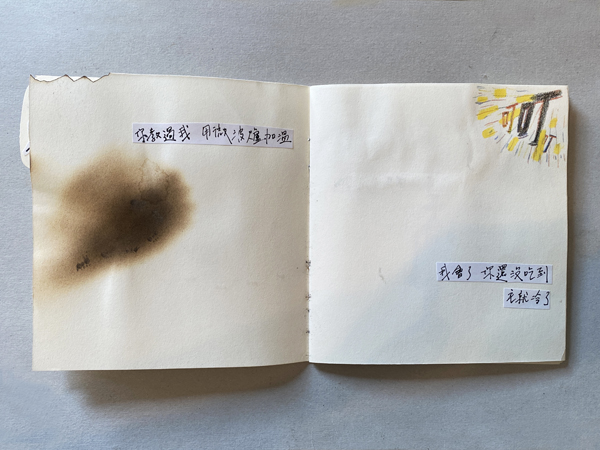 你教過我 用微波爐加溫
叮叮叮
我會了 你還沒吃到
它就冷了